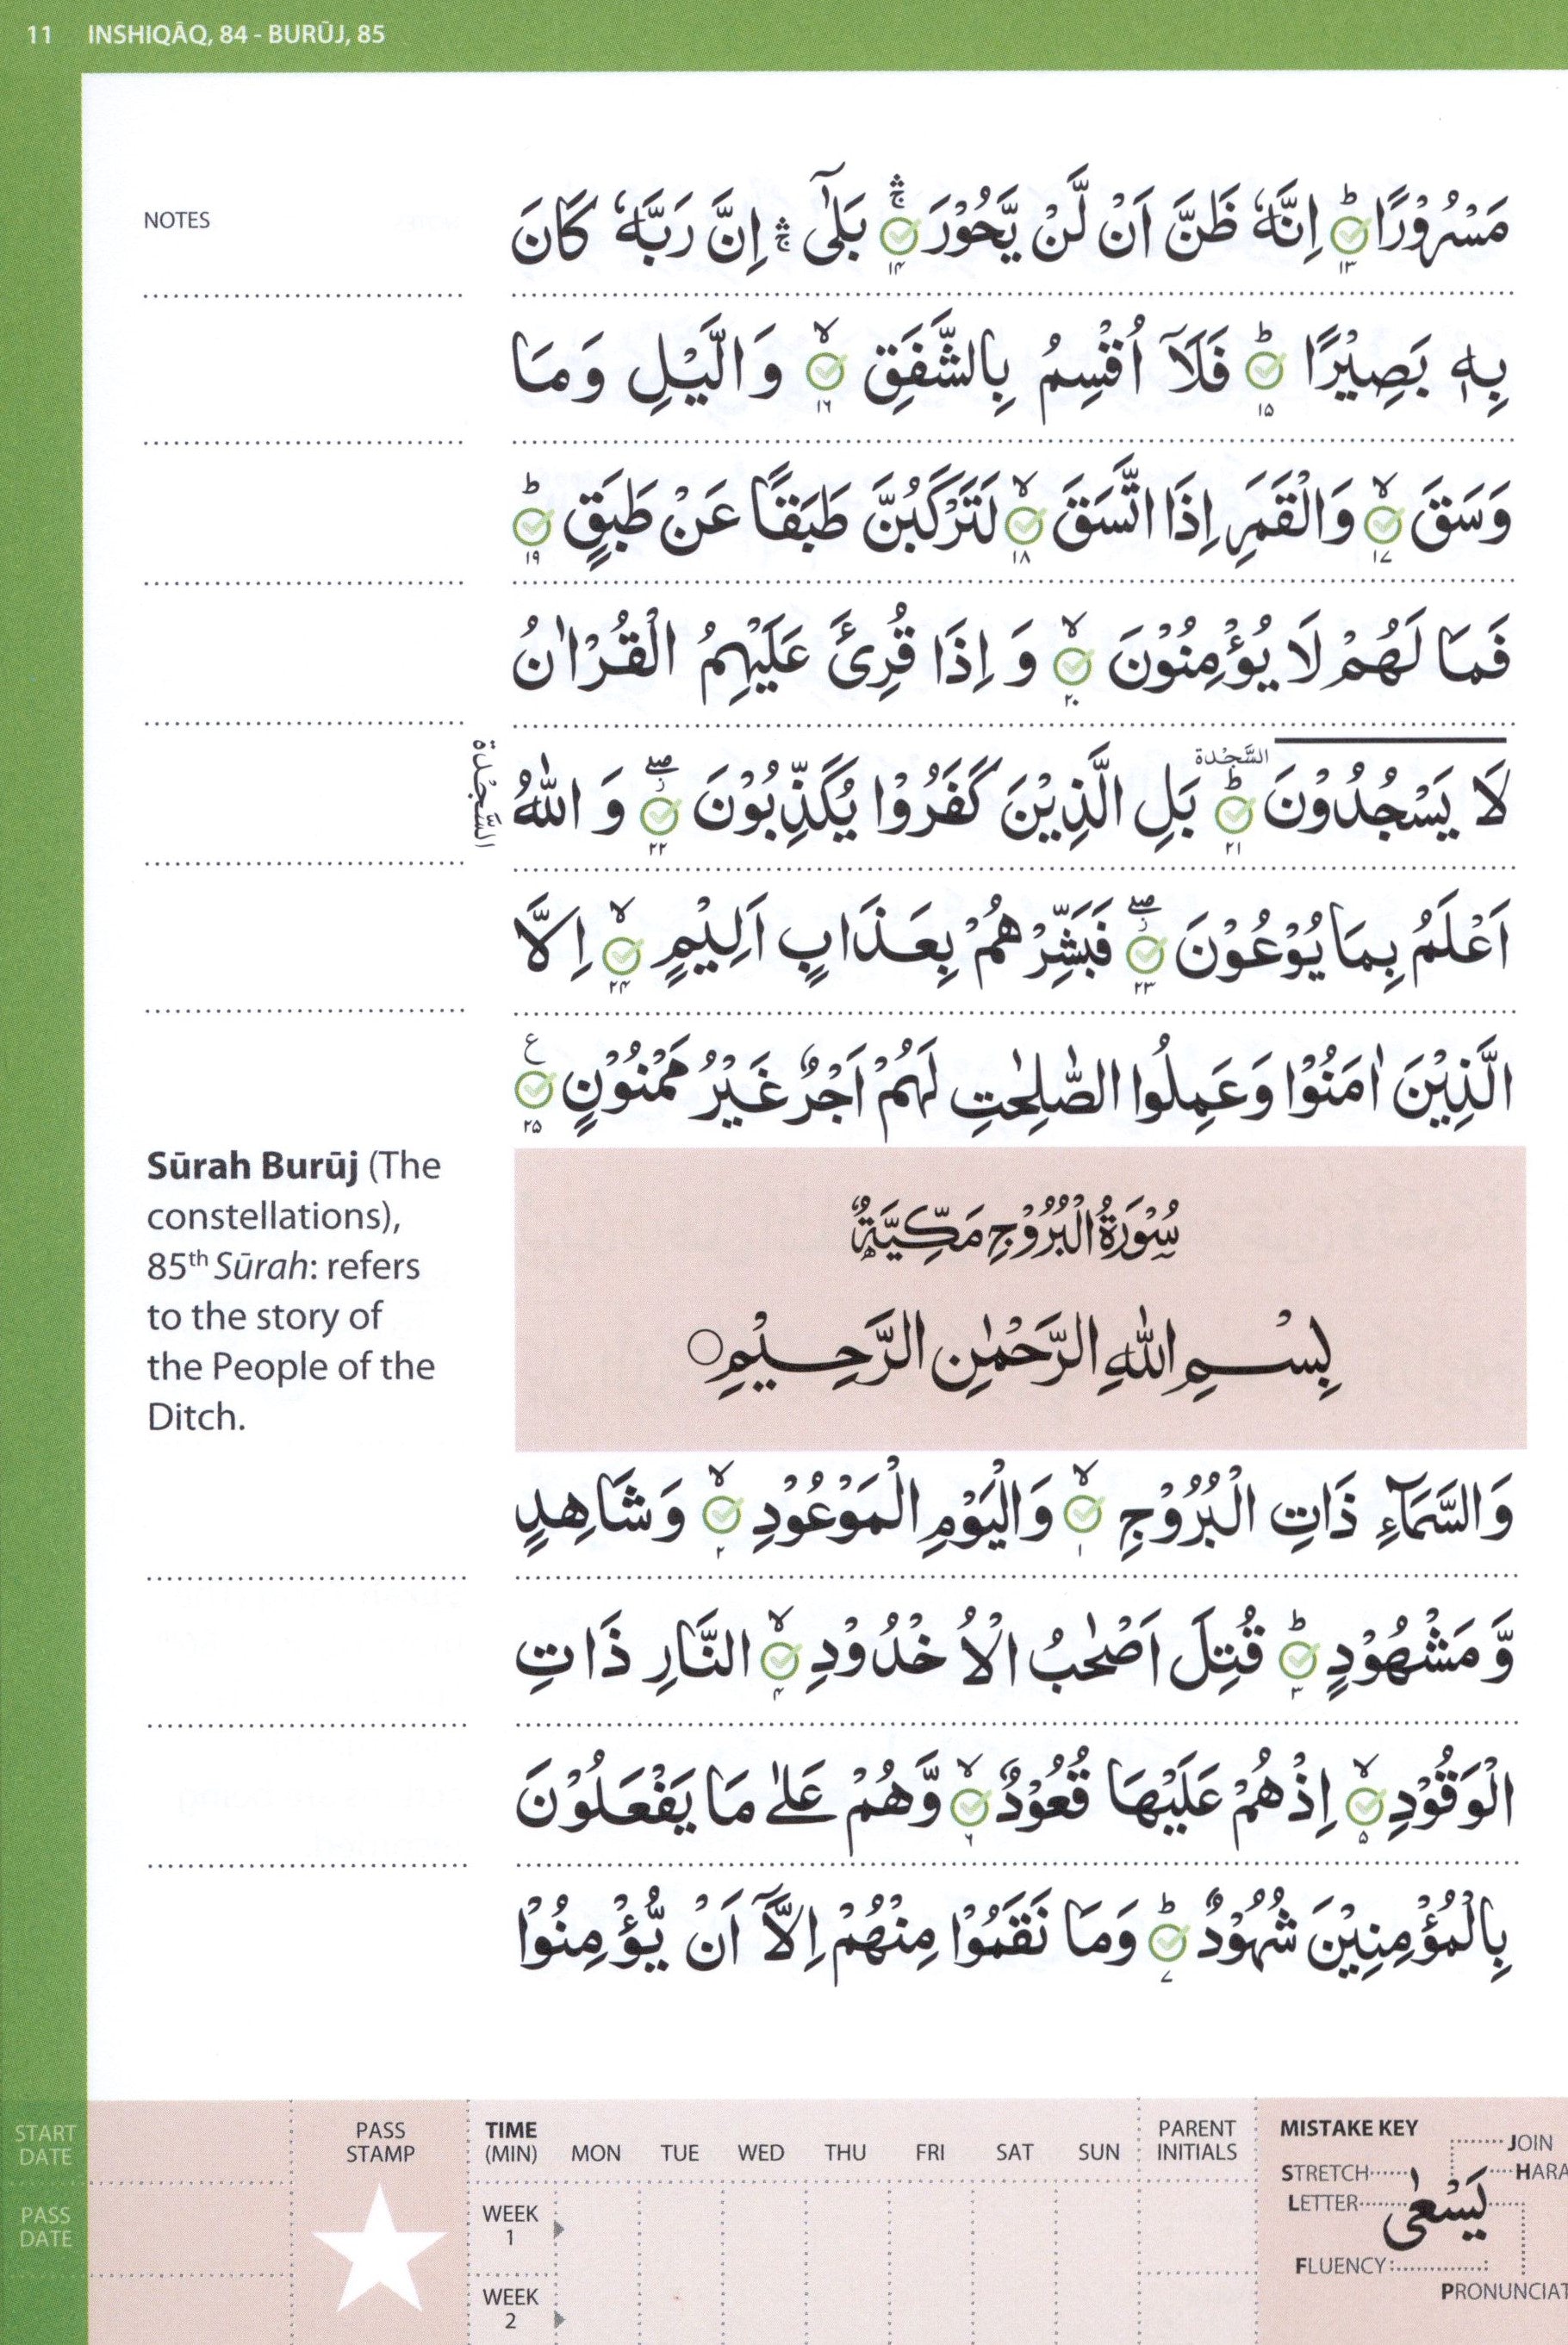 11 INSHIQÂQ, 84 - BURŪJ, 85
NOTES
مَسْرُوْرًا ؕ ۱۳ اِنَّهٗ ظَنَّ اَنْ لَّنْ يَّحُوْرَ ۛۚ ۱۴ بَلٰٓى ۛۚ اِنَّ رَبَّهٗ كَانَ
بِهٖ بَصِيْرًا ؕ ۱۵ فَلَاۤ اُقْسِمُ بِالشَّفَقِ ۙ ۱۶ وَالَّيْلِ وَمَا
وَسَقَ ۙ ۱۷ وَالْقَمَرِ اِذَا اتَّسَقَ ۙ ۱۸ لَتَرْكَبُنَّ طَبَقًا عَنْ طَبَقٍ ؕ ۱۹
فَمَا لَهُمْ لَا يُؤْمِنُوْنَ ۙ ۲۰ وَ اِذَا قُرِئَ عَلَيْهِمُ الْقُرْاٰنُ
لَا يَسْجُدُوْنَ السَّجْدَة ؕ ۲۱ بَلِ الَّذِيْنَ كَفَرُوْا يُكَذِّبُوْنَ ۖ ۲۲ وَ اللّٰهُ
السَّجْدَة
اَعْلَمُ بِمَا يُوْعُوْنَ ۖ ۲۳ فَبَشِّرْهُمْ بِعَذَابٍ اَلِيْمٍ ۙ ۲۴ اِلَّا
الَّذِيْنَ اٰمَنُوْا وَعَمِلُوا الصّٰلِحٰتِ لَهُمْ اَجْرٌ غَيْرُ مَمْنُوْنٍ ع ۲۵
Sūrah Burūj (The
constellations),
85th Sūrah: refers
to the story of
the People of the
Ditch.
سُوْرَةُ الْبُرُوْجِ مَكِّيَّةٌ
بِسْمِ اللّٰهِ الرَّحْمٰنِ الرَّحِيْمِ
وَالسَّمَآءِ ذَاتِ الْبُرُوْجِ ۙ ۱ وَالْيَوْمِ الْمَوْعُوْدِ ۙ ۲ وَشَاهِدٍ
وَّ مَشْهُوْدٍ ؕ ۳ قُتِلَ اَصْحٰبُ الْاُخْدُوْدِ ۙ ۴ النَّارِ ذَاتِ
الْوَقُوْدِ ۙ ۵ اِذْ هُمْ عَلَيْهَا قُعُوْدٌ ۙ ۶ وَّهُمْ عَلٰى مَا يَفْعَلُوْنَ
بِالْمُؤْمِنِيْنَ شُهُوْدٌ ؕ ۷ وَمَا نَقَمُوْا مِنْهُمْ اِلَّاۤ اَنْ يُّؤْمِنُوْا
START
DATE
PASS
DATE
PASS
STAMP
TIME
(MIN) MON TUE WED THU FRI SAT SUN
WEEK
1
WEEK
2
PARENT
INITIALS
MISTAKE KEY
JOIN
STRETCH HARA
LETTER
يَسْعٰى
FLUENCY
PRONUNCIAT